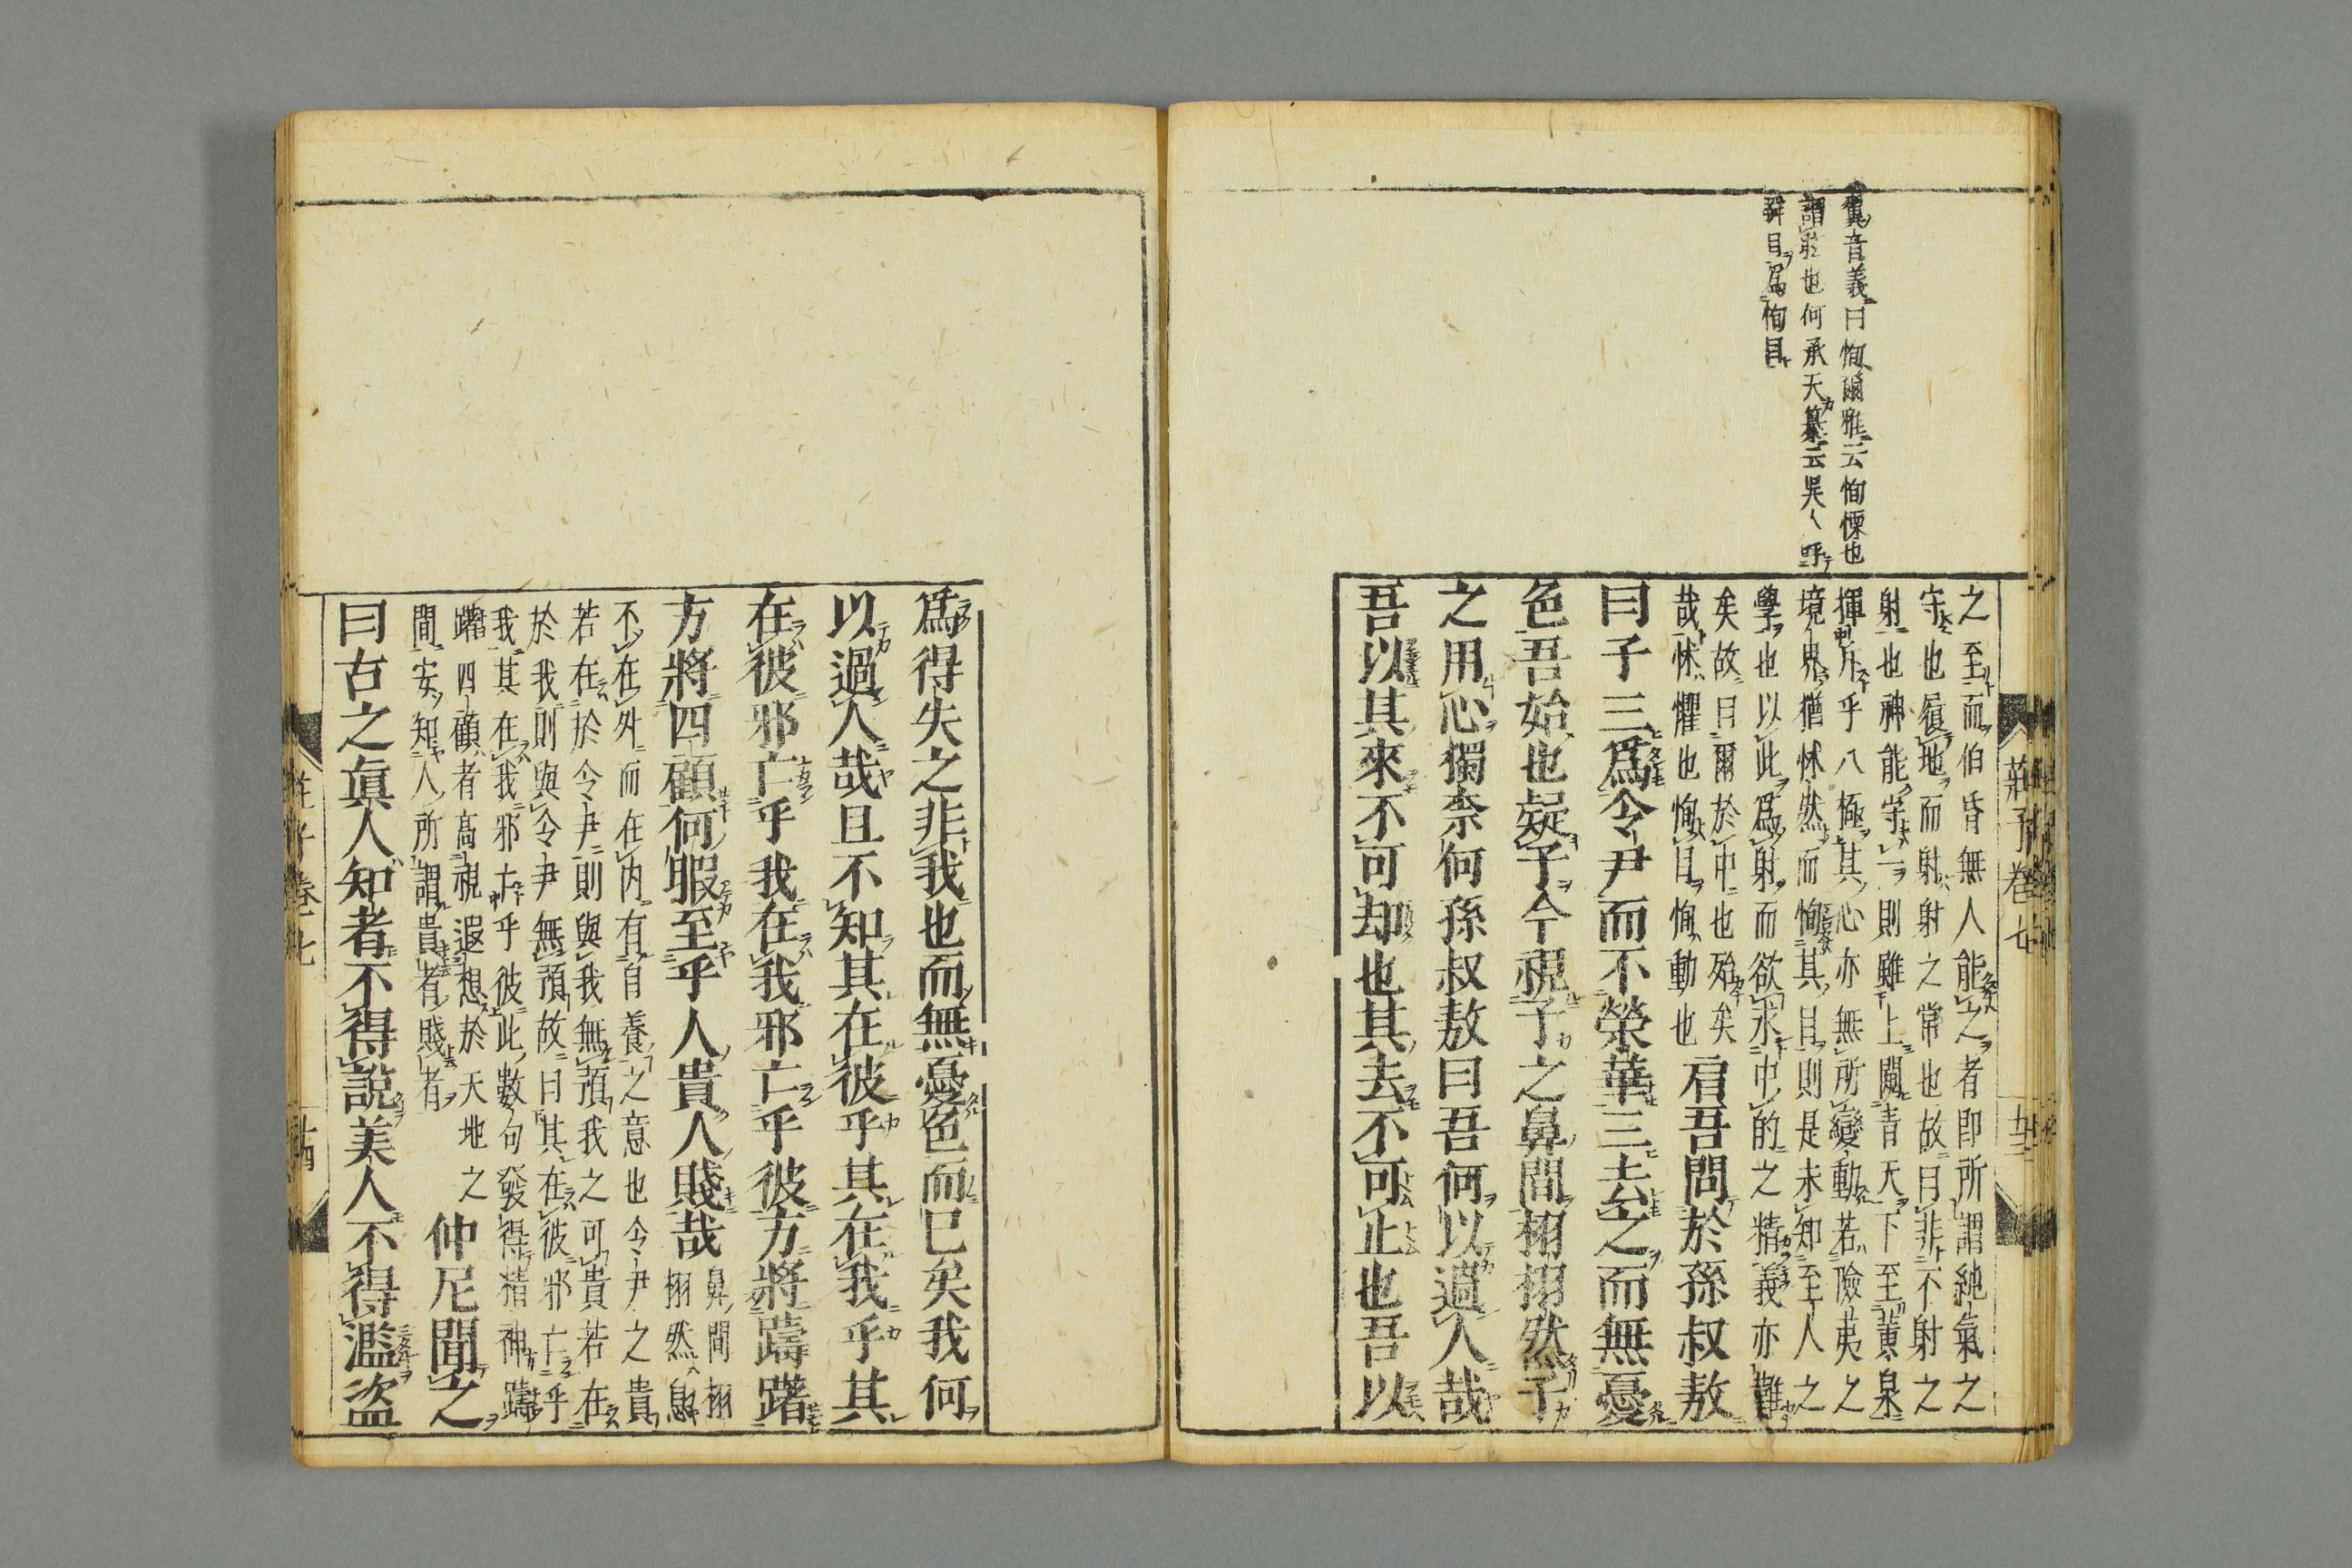 翼音義曰恂爾雅云恂慄也
謂眩也何承天纂云吳人呼
瞬目爲恂目
莊子卷七
之至而伯昏無人能之者即所謂純氣之
守也履地而射射之常也故曰非不射之
射也神能守一則雖上闚青天下至黃泉
揮斥乎八極其心亦無所變動若險夷之
境界猶怵然而恂其目則是未知至人之
學也以此爲射而欲求中的之精義亦難
矣故曰爾於中也殆矣
哉怵懼也恂目恂動也
肩吾問於孫叔敖
曰子三爲令尹而不榮華三去之而無憂
色吾始也疑子今視子之鼻間栩栩然子
之用心獨柰何孫叔敖曰吾何以過人哉
吾以其來不可却也其去不可止也吾以
爲得失之非我也而無憂色而已矣我何
以過人哉且不知其在彼乎其在我乎其
在彼邪亡乎我在我邪亡乎彼方將躊躇
方將四顧何暇至乎人貴人賤哉
鼻間栩
栩然息
不在外而在内有自養之意也令尹之貴
若在於令尹則與我無預我之可貴若在
於我則與令尹無預故曰其在彼邪亡乎
我其在我邪亡乎彼此數句發得精神躊
躇四顧者高視遐想於天地之
間安知人所謂貴者賤者
仲尼聞之
曰古之眞人知者不得說美人不得濫盗
莊子卷七